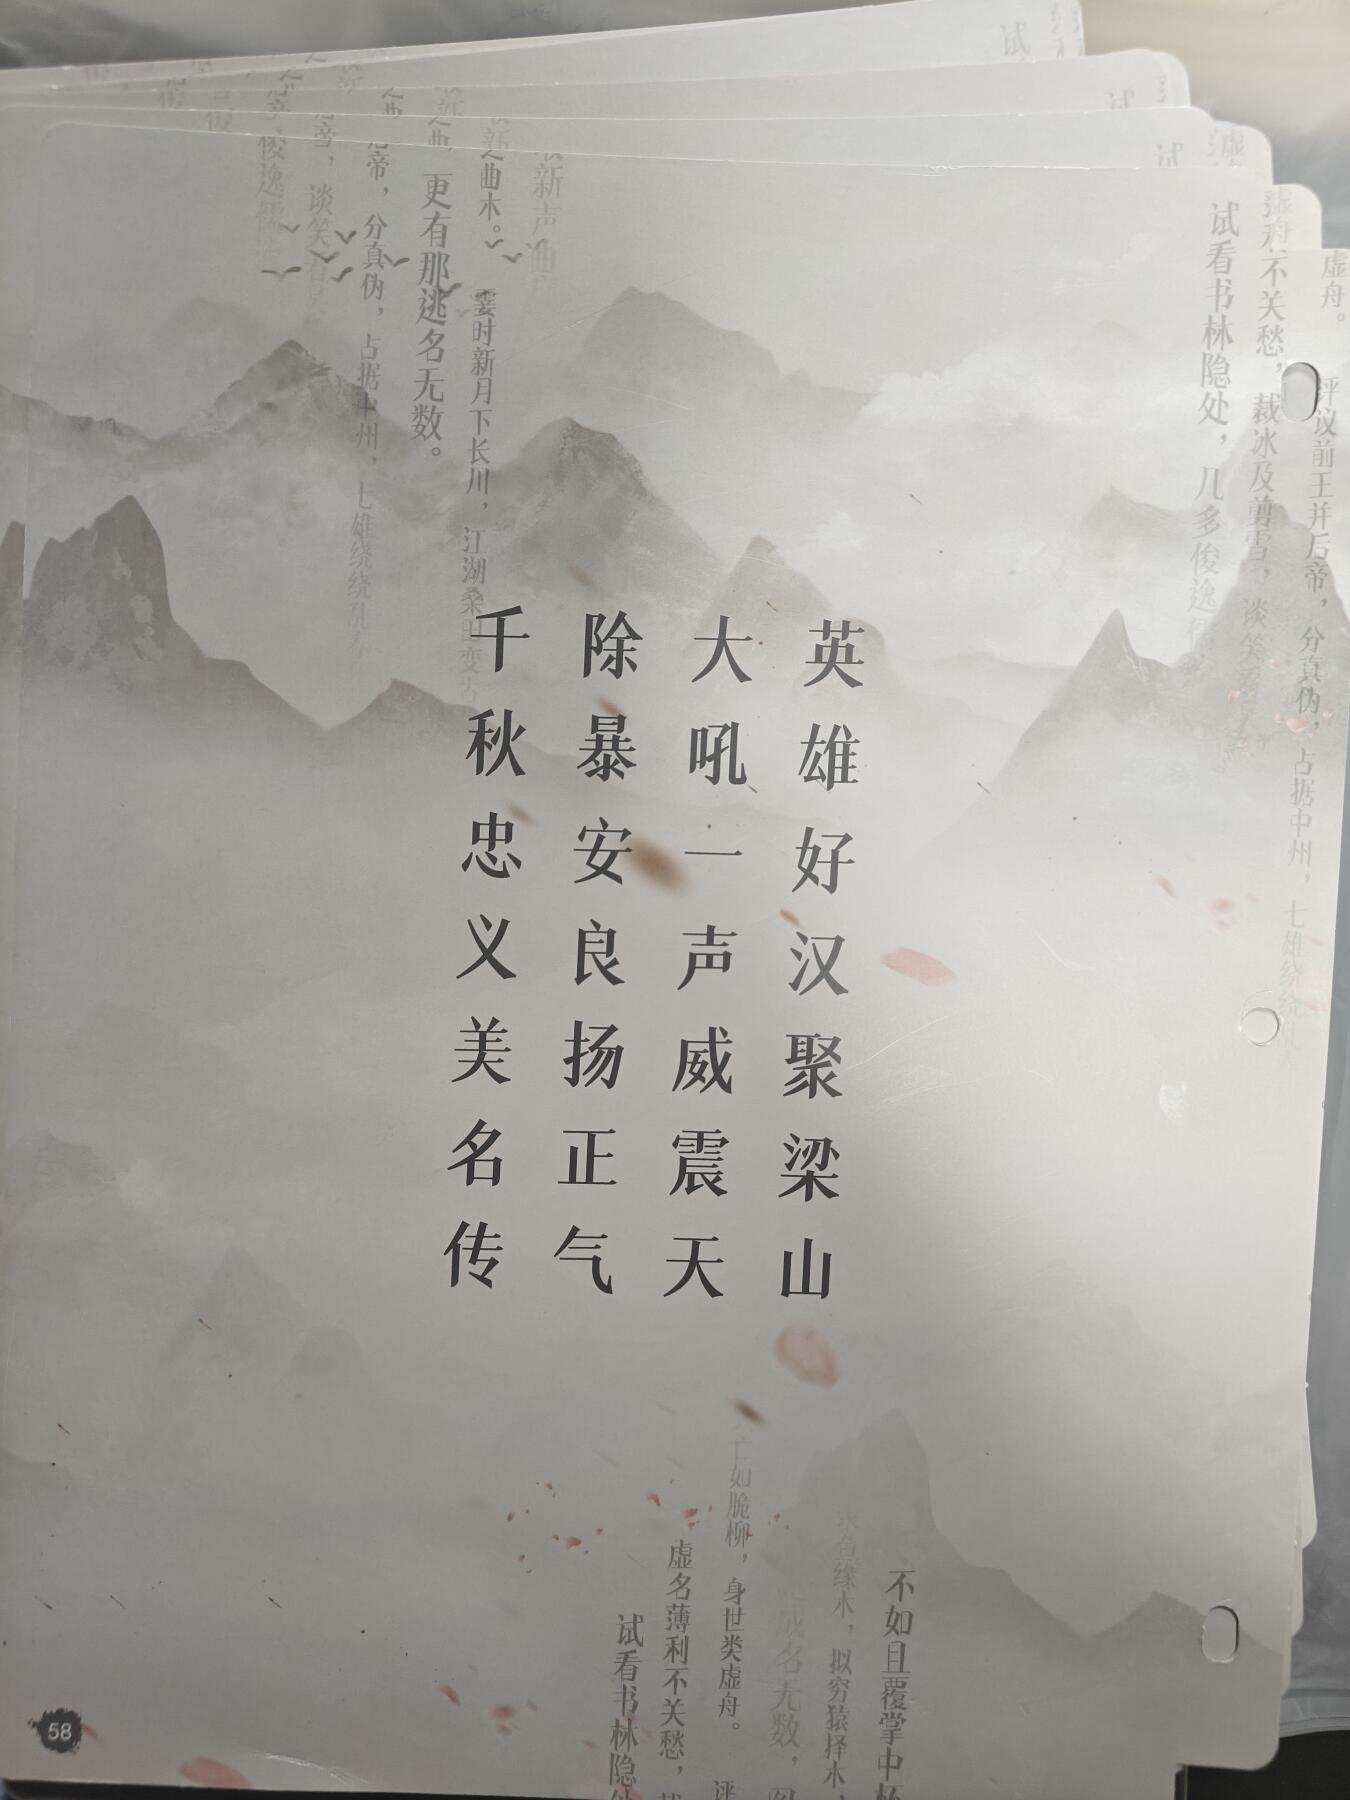 英雄好汉聚梁山
大吼一声威震天
除暴安良扬正气
千秋忠义美名传
虚舟。
评议前王并后帝，分真伪，占据中州，七雄绕绕
不关愁，裁冰及剪雪，谈笑
试看书林隐处，几多俊逸
新声
曲木。
霎时新月下长川，江湖桑田变
更有那逃名无数。
帝，分真伪，占据中州，七雄绕绕乱
谈笑
俊逸儒
试
试
试
不如且覆掌中杯
缘木，拟穷猿择木，
成名无数，
亡如脆柳，身世类虚舟。
评
虚名薄利不关愁，裁
试看书林隐处
58